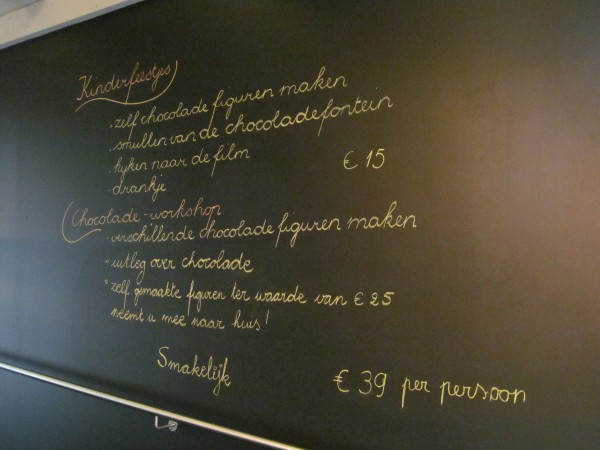 Kinderfeestjes
. zelf chocolade figuren maken
. smullen van de chocoladefontein
. kijken naar de film
€ 15
. drankje
Chocolade-workshop
. verschillende chocolade figuren maken
. uitleg over chocolade
. zelf gemaakte figuren ter waarde van € 25
neemt u mee naar huis!
Smakelijk
€ 39 per persoon